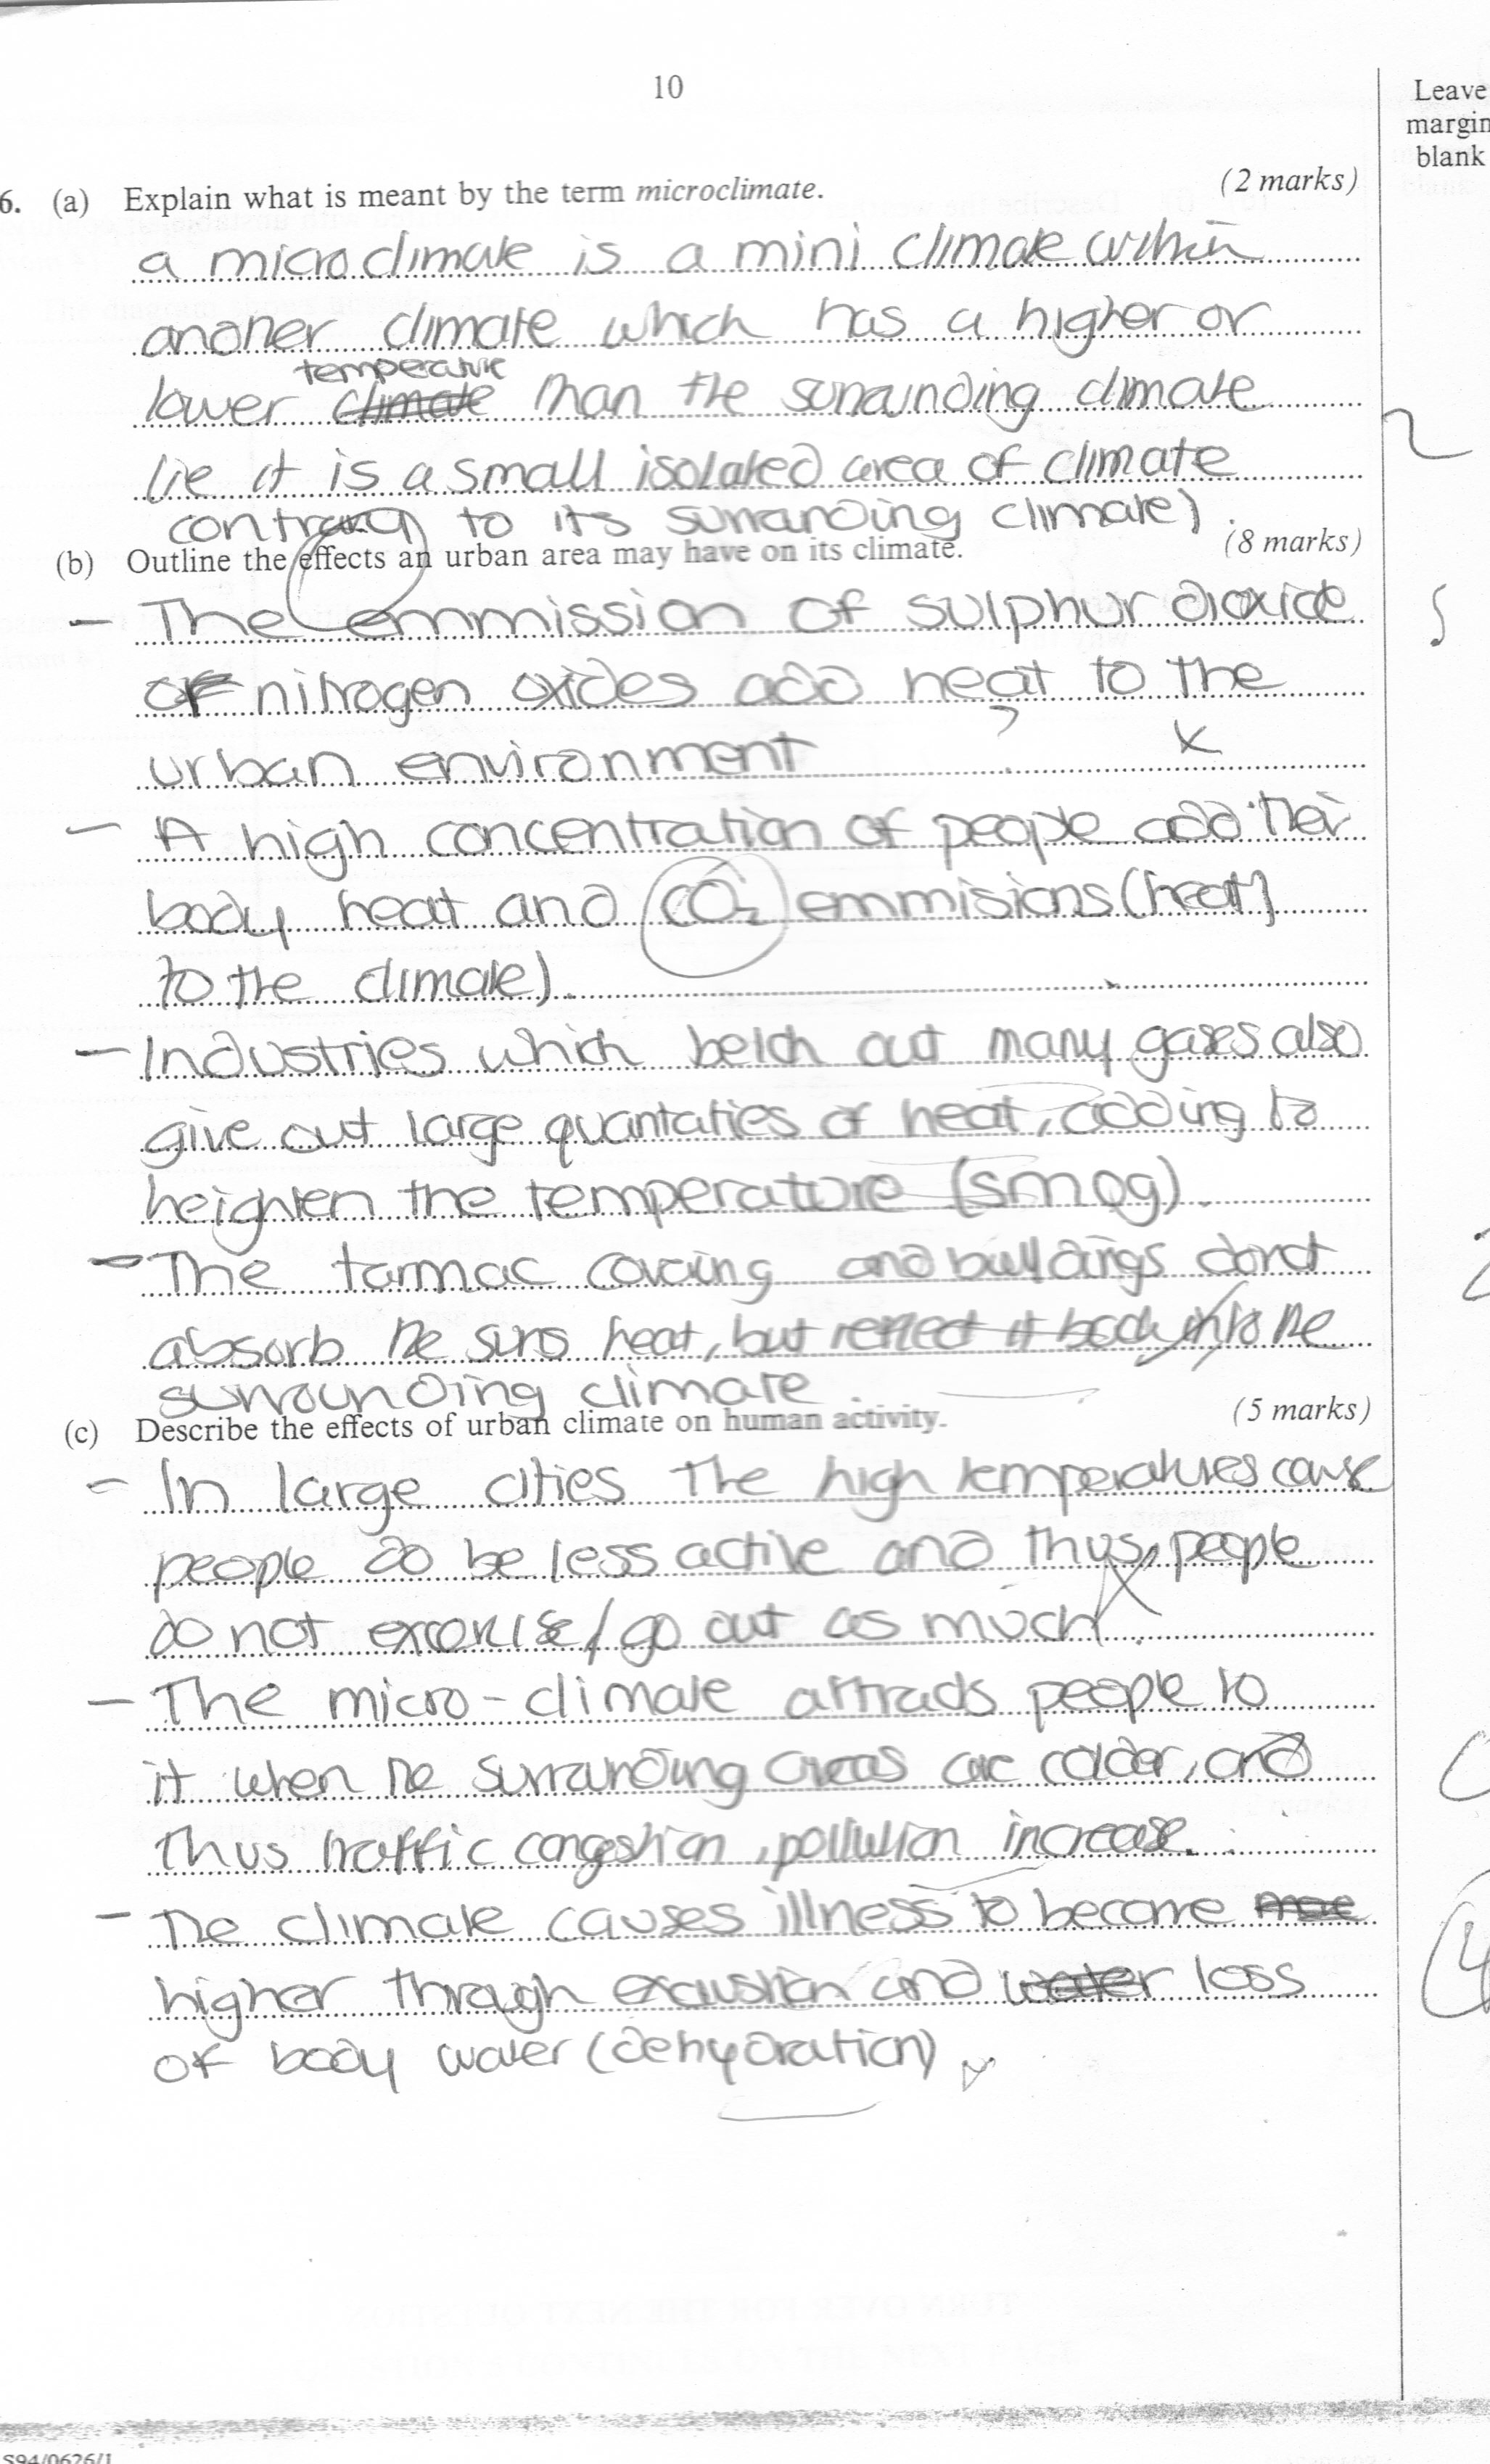 10
Leave
margin
blank
6. (a) Explain what is meant by the term microclimate. (2 marks)
a microclimate is a mini climate within
another climate which has a higher or
temperature
lower climate than the surrounding climate
(ie it is a small isolated area of climate
2
contrary to its surrounding climate).
(b) Outline the effects an urban area may have on its climate. (8 marks)
- The emmission of sulphur dioxide
of nitrogen oxides add heat to the
urban environment
- A high concentration of people add their
body heat and CO2 emmisions (heat)
to the climate).
- Industries which belch out many gases also
give out large quantaties of heat, adding to
heighten the temperature (smog).
- The tarmac covering and buildings donot
2
absorb the suns heat, but reflect it back into the
surrounding climate.
(c) Describe the effects of urban climate on human activity. (5 marks)
- In large cities the high temperatures cause
people do be less active and thus, people
do not excercise / go out as much.
- The micro-climate attracts people to
it when the surrounding areas are colder, and
thus traffic congestion, pollution increase.
- The climate causes illness to become
higher through exaustion and water loss
4
of body water (dehydration)
S94/0626/1